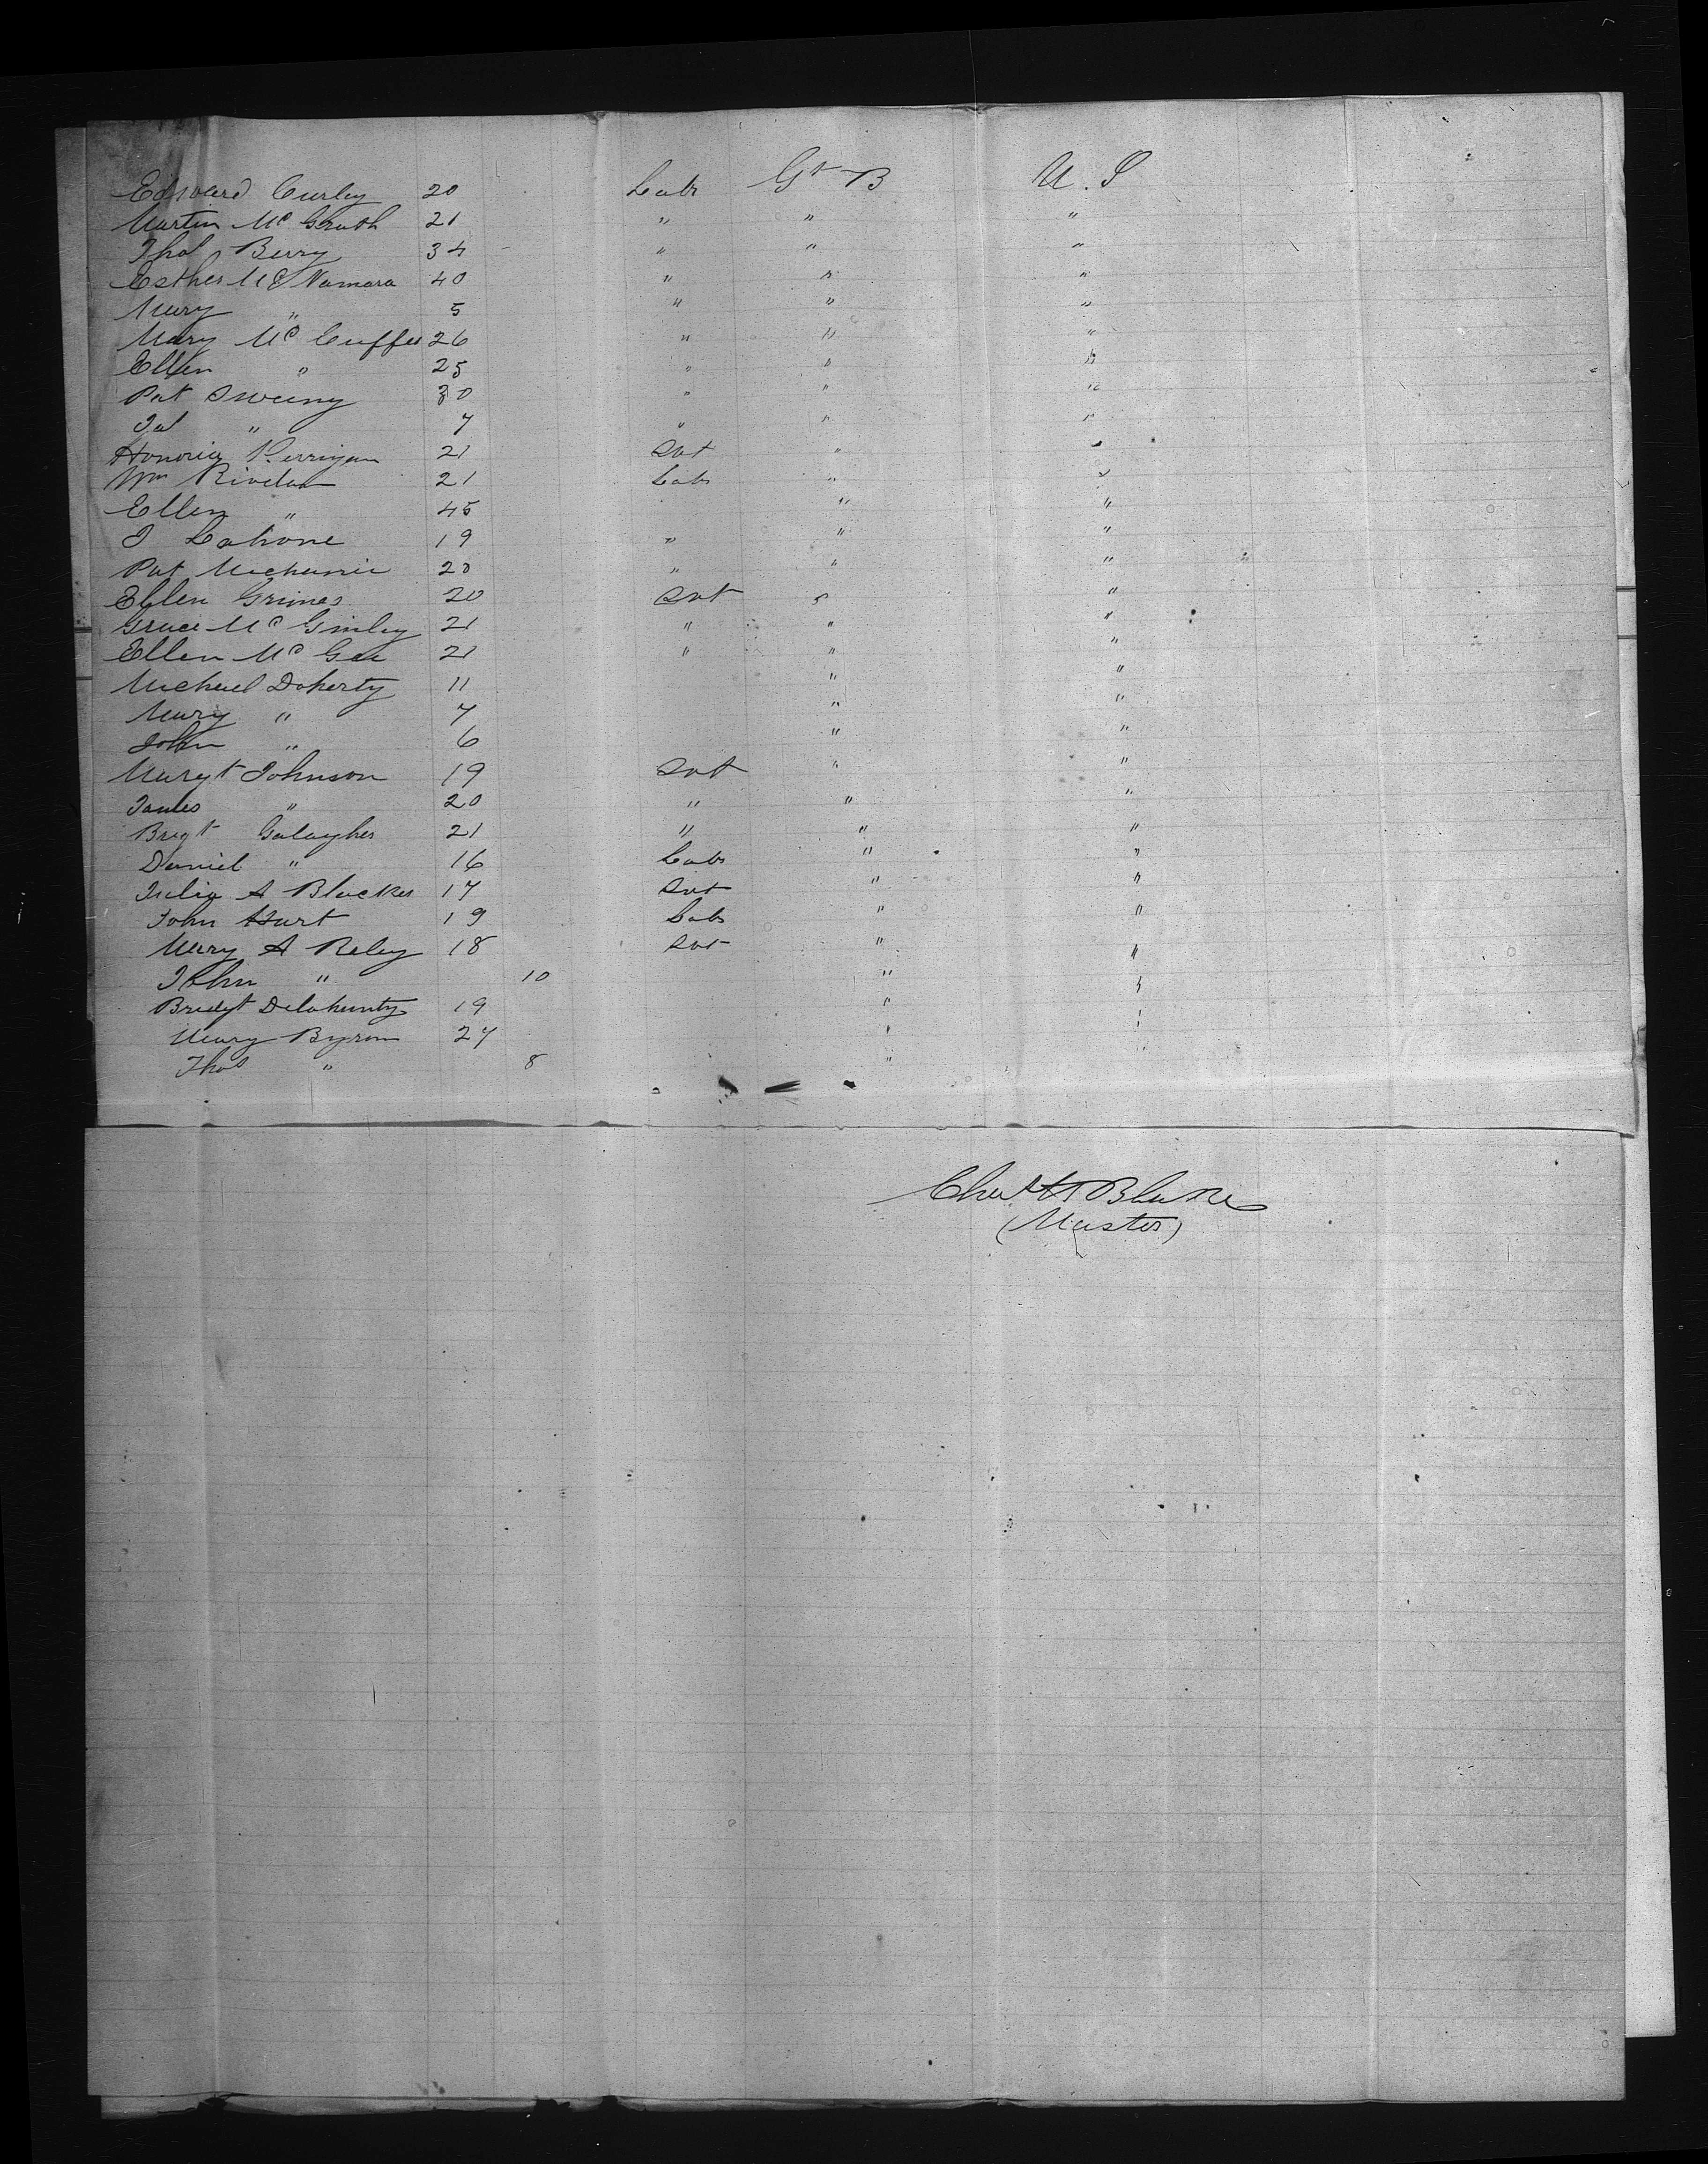 Edward Curley 20 Labr Gt B U.S
Martin Mc Grath 21 " " "
Thos Berry 34 " " "
Esther Mc Namara 40 " " "
Mary " 5 " " "
Mary Mc Cuffee 26 " " "
Ellen " 25 " " "
Pat Sweeny 30 " " "
Jas " 7 " " "
Honoria Kerrigan 21 Svt " "
Wm 21 Labr " "
Ellen " 45 " "
J Lahone 19 " " "
Pat 20 " " "
Ellen Grimes 20 Svt " "
Grace Mc Ginley 21 " " "
Ellen Mc Gee 21 " " "
Michael Doherty 11 " "
Mary " 7 " "
John " 6 " "
Margt Johnson 19 Svt " "
James " 20 " " "
Bregt Galagher 21 " " "
Daniel " 16 Labr " "
Julia A Blacker 17 Svt " "
John Hart 19 Labr " "
Mary A Reley 18 Svt " "
John " 10 " "
Bridgt Delahunty 19 " "
Mary Byron 27 " "
Thos " 8 "
Chas H Blake
(Master)